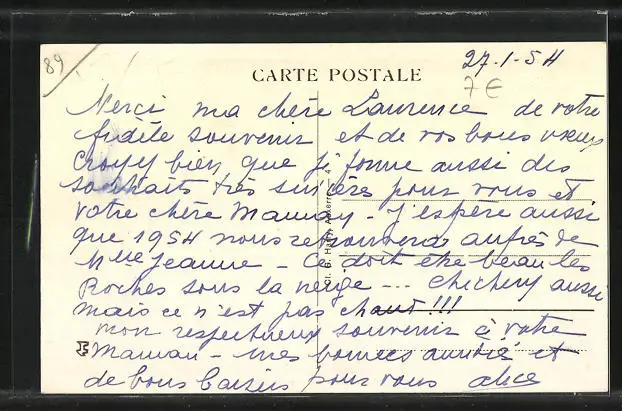 89
27-1-54
CARTE POSTALE
7€
Merci ma chère Laurence de votre
fidèle souvenir et de vos bons vœux
Croyez bien que je forme aussi des
souhaits très sincères pour vous et
votre chère Maman - J'espère aussi
que 1954 nous retrouvera auprès de
Mlle Jeanne - Ce doit être beau les
Roches sous la neige --- Chichery aussi
mais ce n'est pas chaud !!!
mon respectueux souvenir à votre
Maman - mes bonnes amitiés et
de bons baisers pour vous Alice